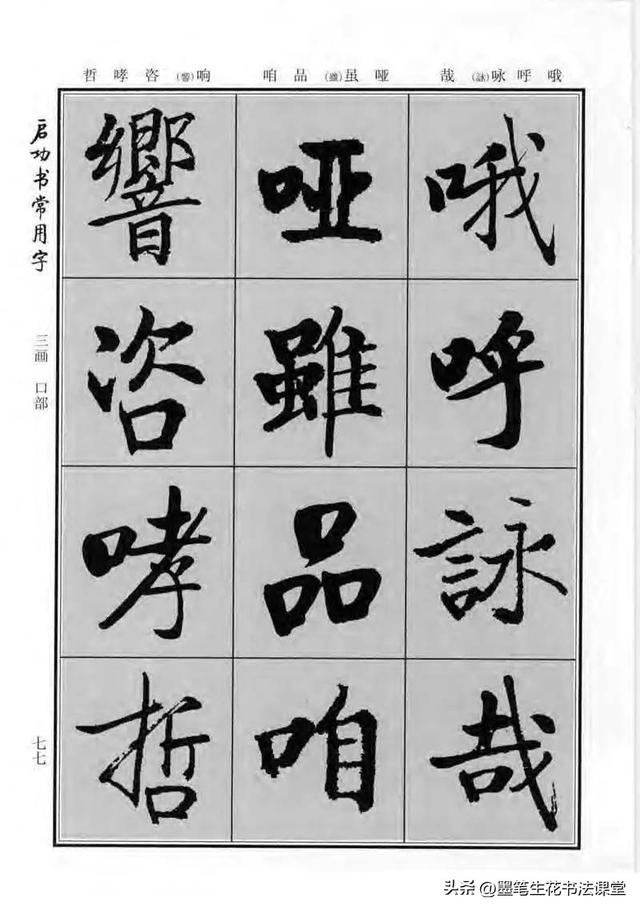 哦呼咏(詠)哉 哑虽(雖)品咱 响(響)咨哮哲
哦呼詠哉
哑雖品咱
響咨哮哲
启功书常用字
三画 口部
七七
头条 @墨笔生花书法课堂